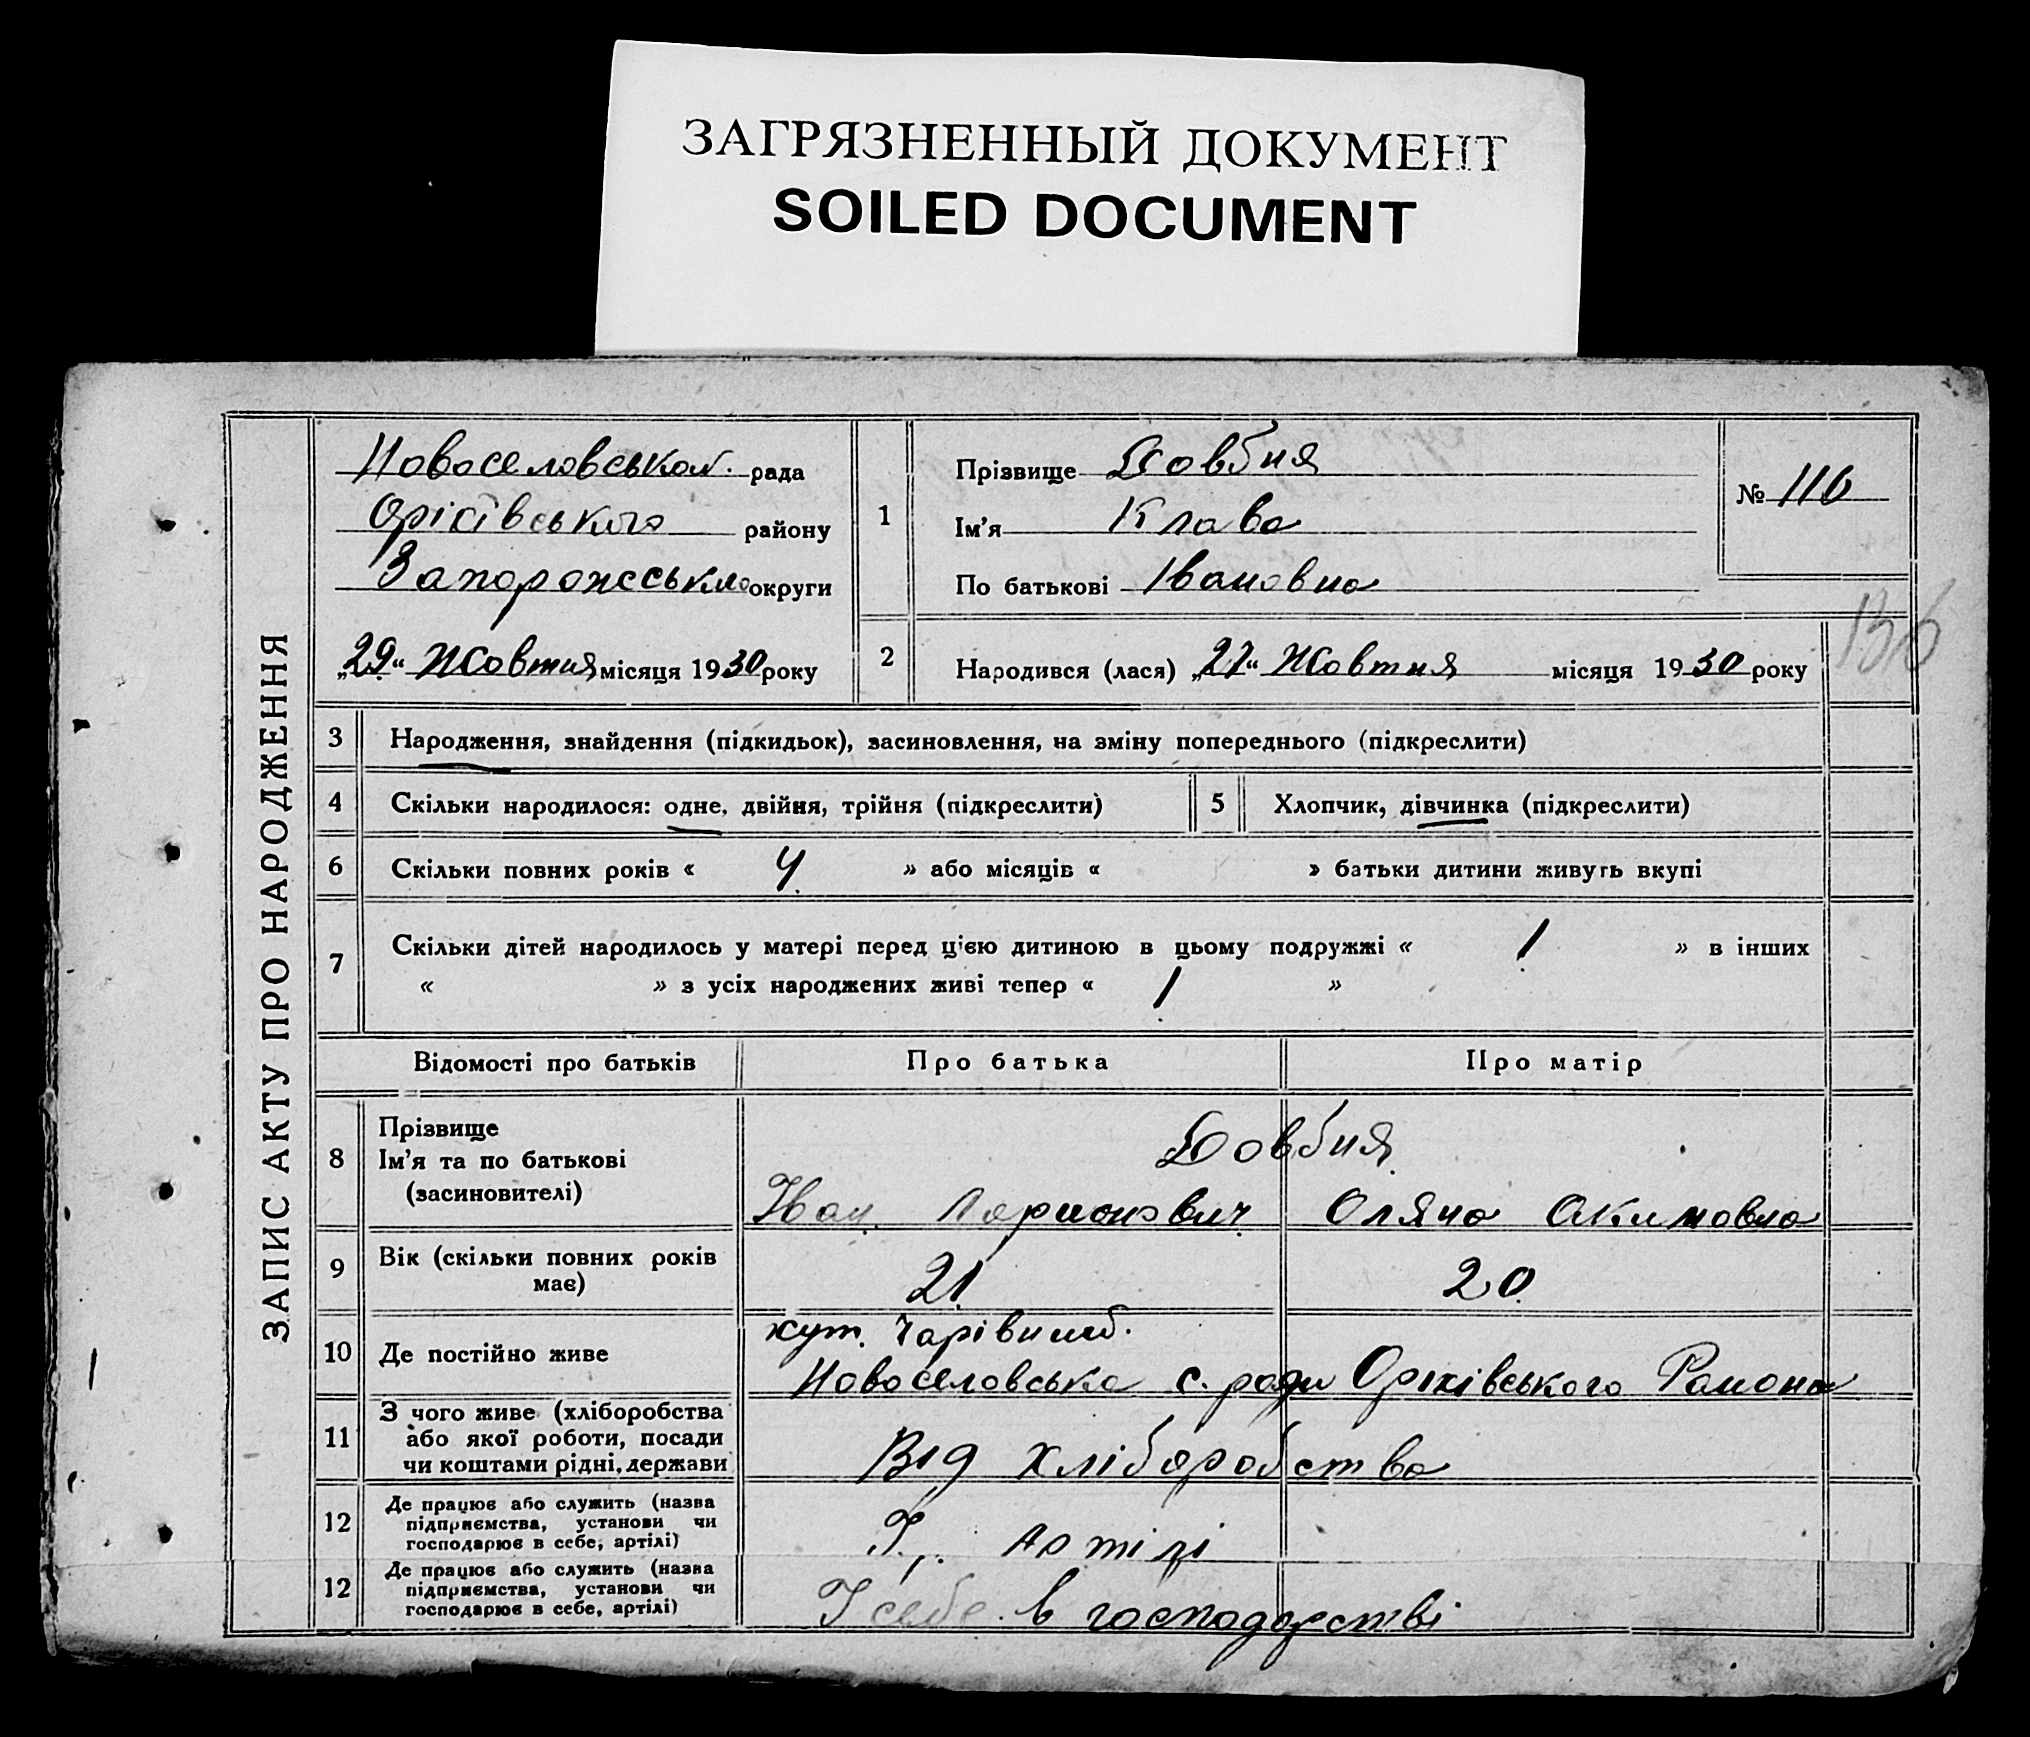 ЗАГРЯЗНЕННЫЙ ДОКУМЕНТ
SOILED DOCUMENT
ЗАПИС АКТУ ПРО НАРОДЖЕННЯ
Новоселовськой рада
Оріхівського району
Запорожсько округи
„29“ Жовтня місяця 1930 року
1 Прізвище Довбня
Ім'я Клава
По батькові Івановна
№ 110
136
2 Народився (лася) „27“ Жовтня місяця 1930 року
3 Народження, знайдення (підкидьок), засиновлення, на зміну попереднього (підкреслити)
4 Скільки народилося: одне, двійня, трійня (підкреслити) 5 Хлопчик, дівчинка (підкреслити)
6 Скільки повних років « 4 » або місяців « » батьки дитини живуть вкупі
7 Скільки дітей народилось у матері перед цією дитиною в цьому подружжі « 1 » в інших
« » з усіх народжених живі тепер « 1 »
Відомості про батьків Про батька Про матір
8 Прізвище
Ім'я та по батькові
(засиновителі)
Довбня
Іван Ларионович Оляна Акимовна
9 Вік (скільки повних років
має)
21 20
10 Де постійно живе
хут. Чарівний.
Новоселовська с. ради Оріхівського Района
11 З чого живе (хліборобства
або якої роботи, посади
чи коштами рідні, держави
Від хліборобства
12 Де працює або служить (назва
підприємства, установи чи
господарює в себе, артілі)
артілі
12 Де працює або служить (назва
підприємства, установи чи
господарює в себе, артілі)
У себе в господарстві